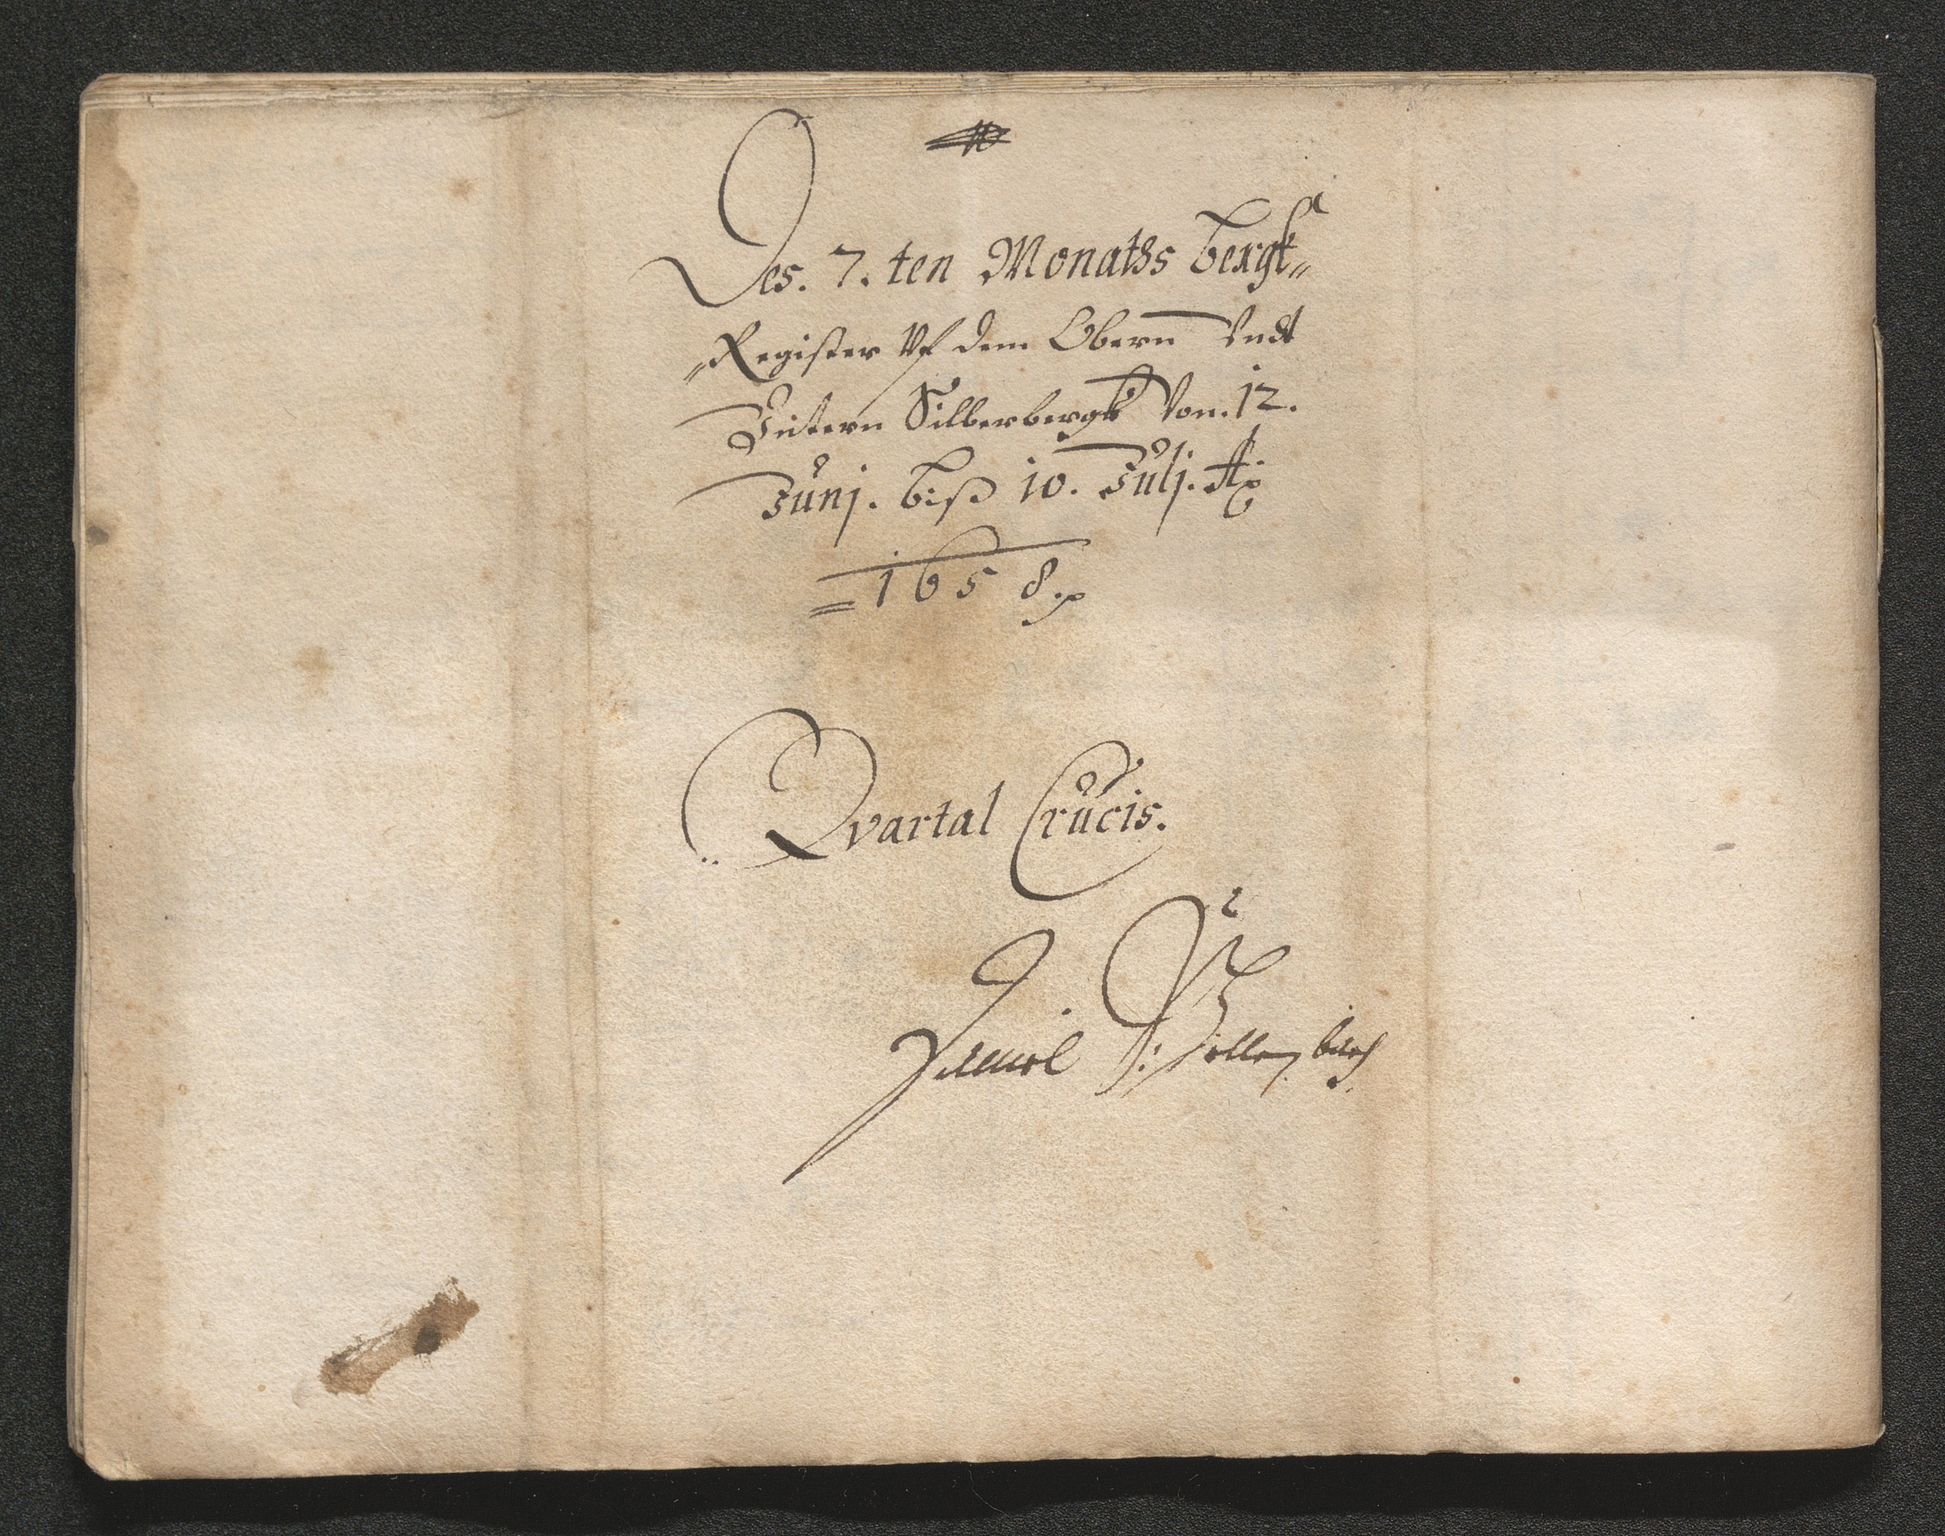 Des. 7. ten Monaths bergk„
„Register Vf dem Obern Vndt
Vntern Silbergbergk Von. 12.
Junj. biß 10. Julj. Aō
1658.
Qvartal Crucis.